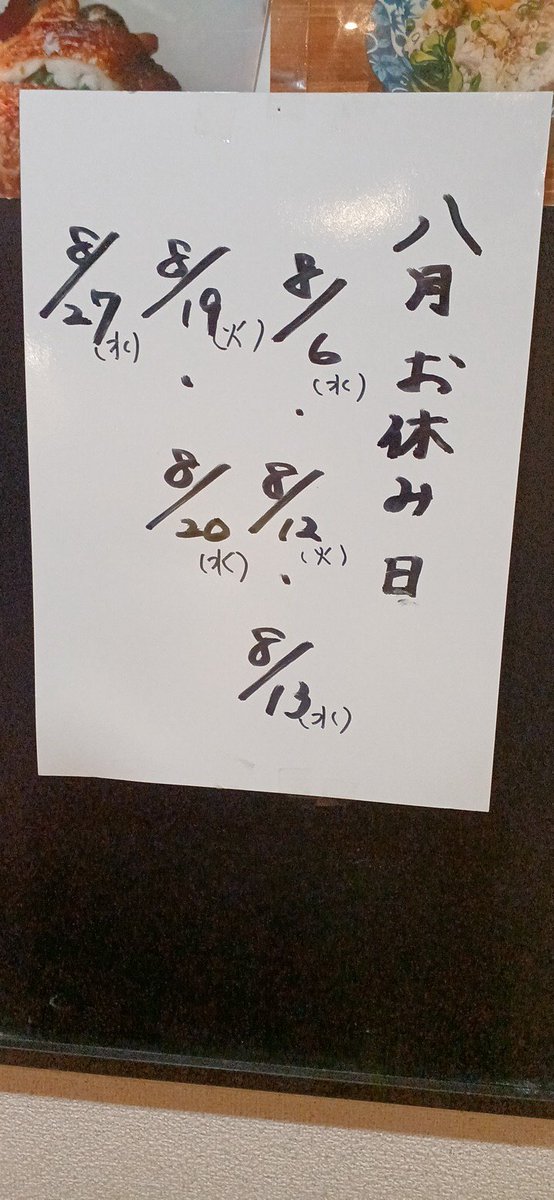 八月お休み日
8/6(水)
・
8/12(火)
・
8/13(水)
8/19(火)
・
8/20(水)
8/27(水)